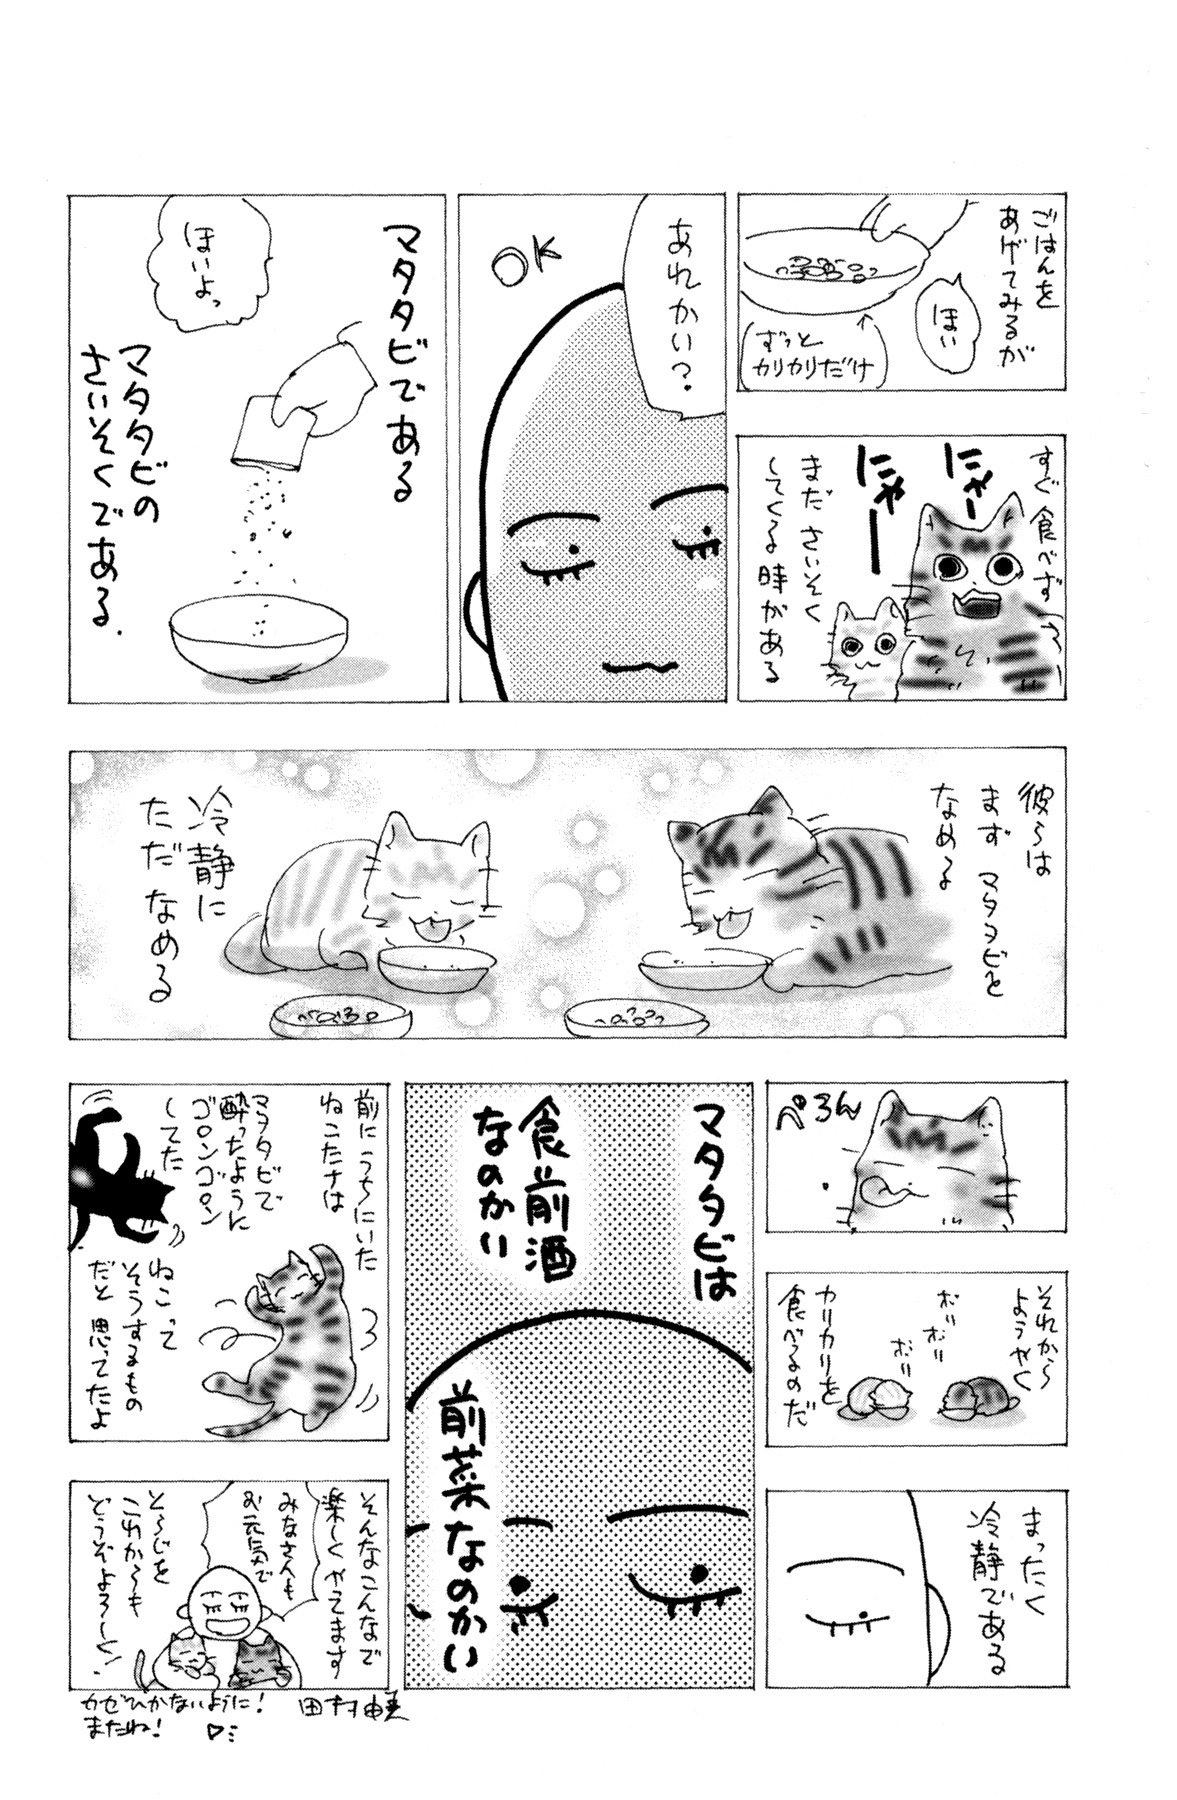 ごはんを
あげてみるが
ほい
ずっと
カリカリだけ
すぐ食べず
にゃー
にゃー
まださいそく
してくる時がある
あれかい?
OK
マタタビである
ほいよっ
マタタビの
さいそくである.
彼らは
まずマタタビを
なめる
冷静に
ただなめる
ぺろん
それから
ようやく
ポリ
ポリ
ポリ
カリカリを
食べるのだ
まったく
冷静である
マタタビは
食前酒
なのかい
前菜なのかい
前にうちにいた
ねこたちは
マタタビで
酔ったように
ゴロンゴロン
してた
ねこって
そうするもの
だと思ってたよ
そんなこんなで
楽しくやてます
みなさんも
お元気で
とらじを
これからも
どうぞよろしく!
カゼひかないように!
またね!
田村由美